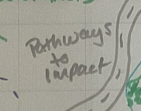 Pathways
to
Impact